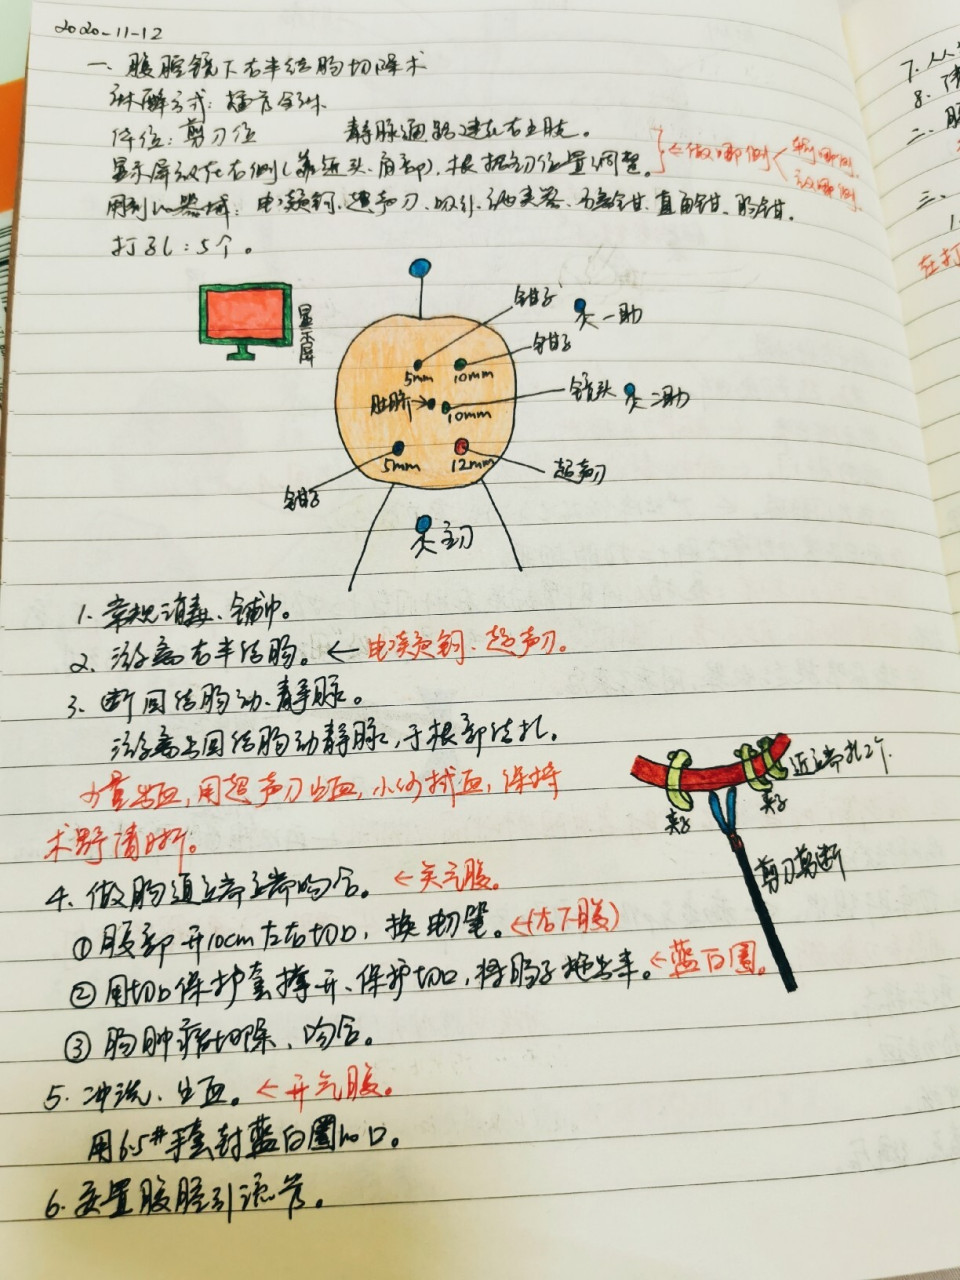 2020-11-12
一、腹腔镜下右半结肠切除术
麻醉方式：插管全麻
体位：剪刀位 静脉通路建在右上肢。
显示屏放在右侧（靠近头、肩部），根据主刀位置调整。
←做哪侧
躺哪侧
放哪侧
用到的器械：电凝钩、超声刀、吸引、施夹器、分离钳、直角钳、肠钳。
打孔：5个。
显示屏
钳子
一助
钳子
5mm
10mm
镜头
二助
肚脐→
10mm
5mm
12mm
超声刀
钳子
主刀
1. 常规消毒、铺巾。
2. 游离右半结肠。←电凝钩、超声刀。
3. 断回结肠动、静脉。
游离出回结肠动静脉，于根部结扎。
少量出血，用超声刀止血，小纱拭血，保持
术野清晰。
近端扎2个
夹子
夹子
剪刀剪断
4. 做肠道端端吻合。←关气腹。
① 腹部开10cm左右切口，换电笔。←(右下腹)
② 用切口保护套撑开、保护切口，将肠子拖出来。←蓝白圈。
③ 肠肿瘤切除、吻合。
5. 冲洗、止血。←开气腹。
用6.5#手套封蓝白圈的口。
6. 安置腹腔引流管。
7. 从
8.
二、
三、
1.
在打